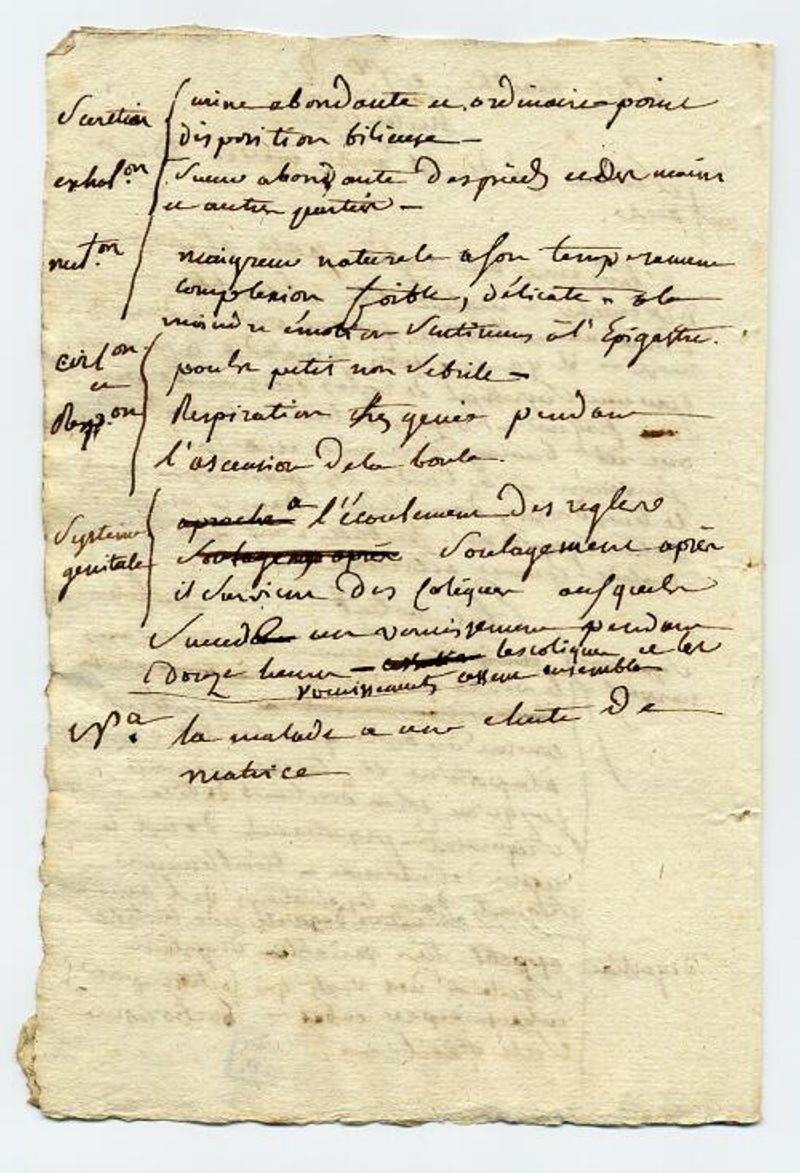 Secretion urine abondante et ordinaire point
disposition bilieuse —
exhal.on Sueur abondante des pieds et des mains
et autres parties —
nut.on maigreur naturele a son temperament
complexion foible, délicate - a la
moindre émotion Sentiment à l'Epigastre.
circ.on pouls petit non febrile —
et
Resp.on Respiration tres genée pendant
l'ascension de la boule.
Systeme aproche a l'écoulement des regles
genitale Soulagement après Soulagement après
il Survient des coliques ausquels
Succede un vomissement pendant
Douze heures — les coliques et les
vomissements cessent ensemble
Nª. la malade a une chute de
matrice